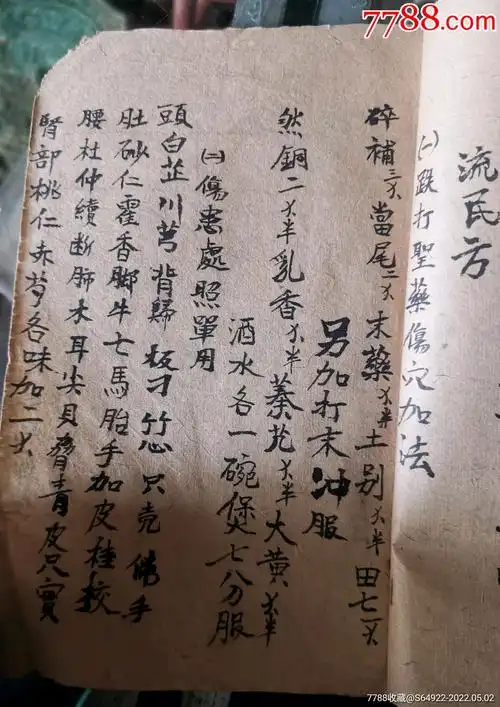 7788.com
流民方
㈠跌打聖藥傷穴加法
碎補三大當尾二大末藥大半土别大半田七一大
另加打末冲服
然銅二大半乳香大半蓁艽大半大黄大半
酒水各一碗煲七八分服
㈡傷患處照單用
頭白芷川芎背歸板刁竹心只壳佛手
肚砂仁霍香脚牛七馬胎手加皮桂枝
腰杜仲續断肺木耳尖貝脅青皮只實
腎部桃仁赤芍各味加二大
7788.com
7788收藏@S64922-2022.05.02